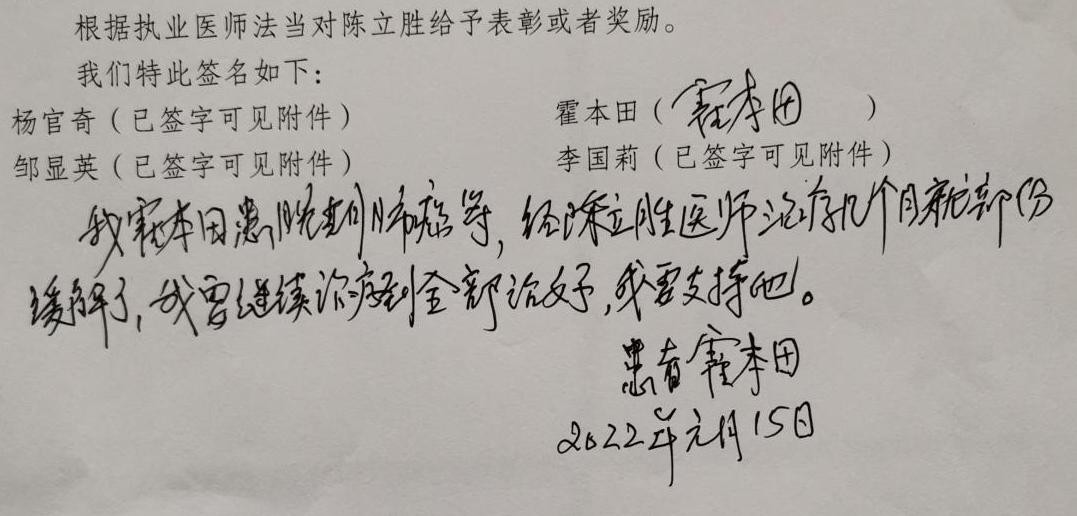 根据执业医师法当对陈立胜给予表彰或者奖励。
我们特此签名如下：
杨官奇（已签字可见附件） 霍本田（霍本田）
邹显英（已签字可见附件） 李国莉（已签字可见附件）
我霍本田患 等，经陈立胜医师治疗几个月就部份
缓解了，我要继续治疗到全部治好，我要支持他。
患者霍本田
2022年元月15日